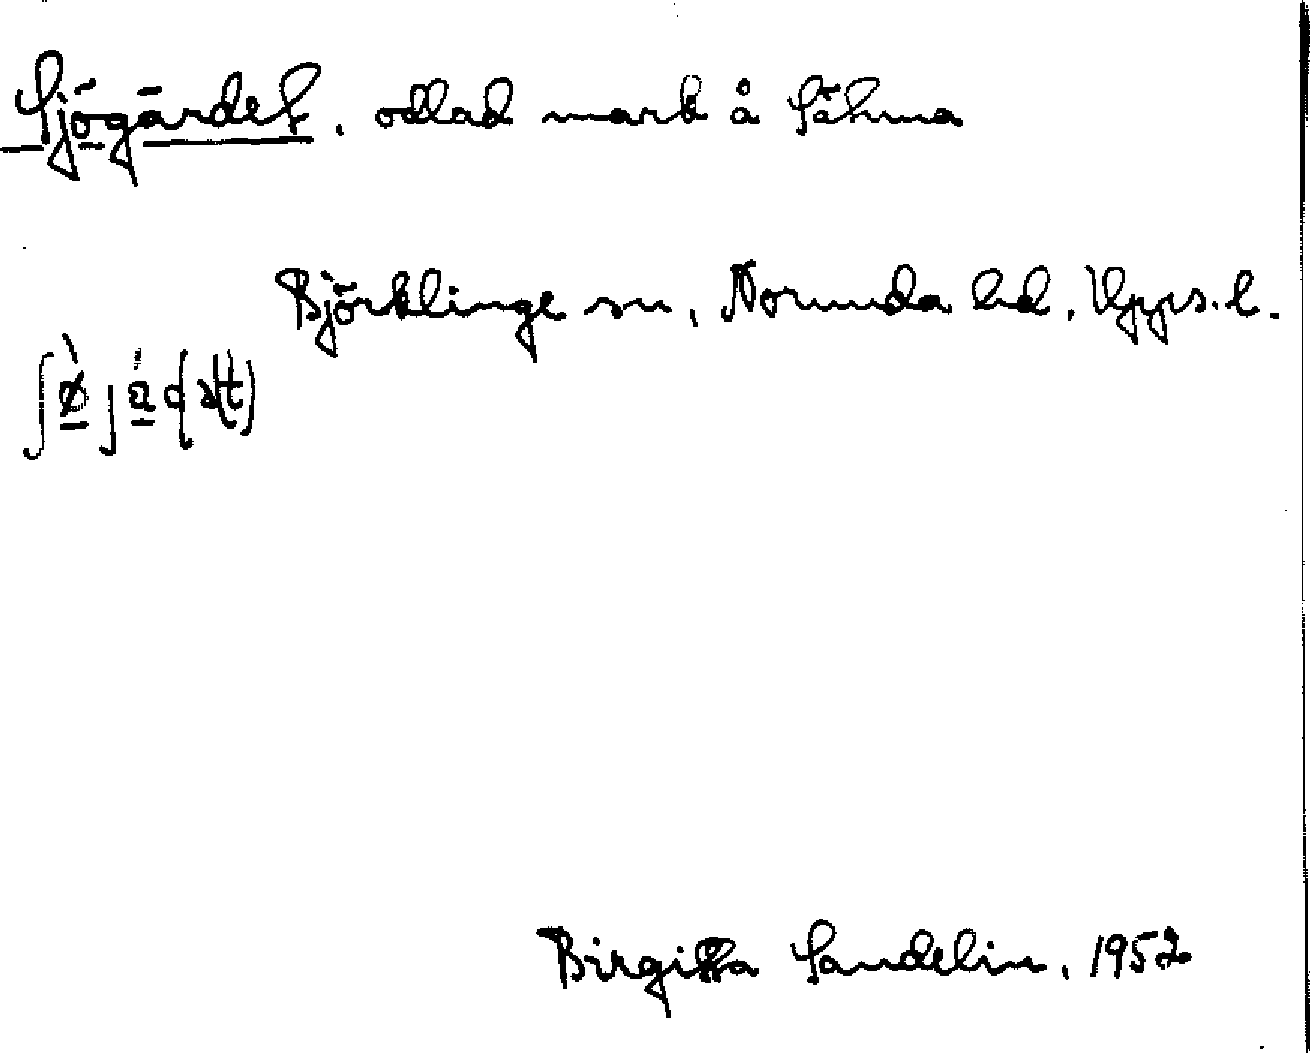 Sjögärdet, odlad mark å Sähma
Björklinge sn, Norunda hd, Upps. l.
Birgitta Sandelin, 1952